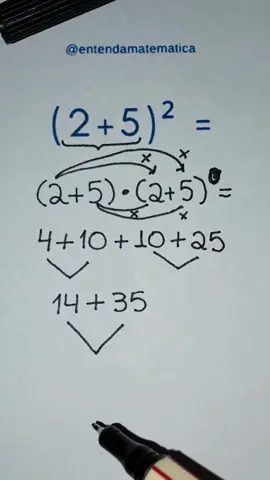 @entendamatematica
(2+5)² =
(2+5)•(2+5) =
4+10+10+25
14+35